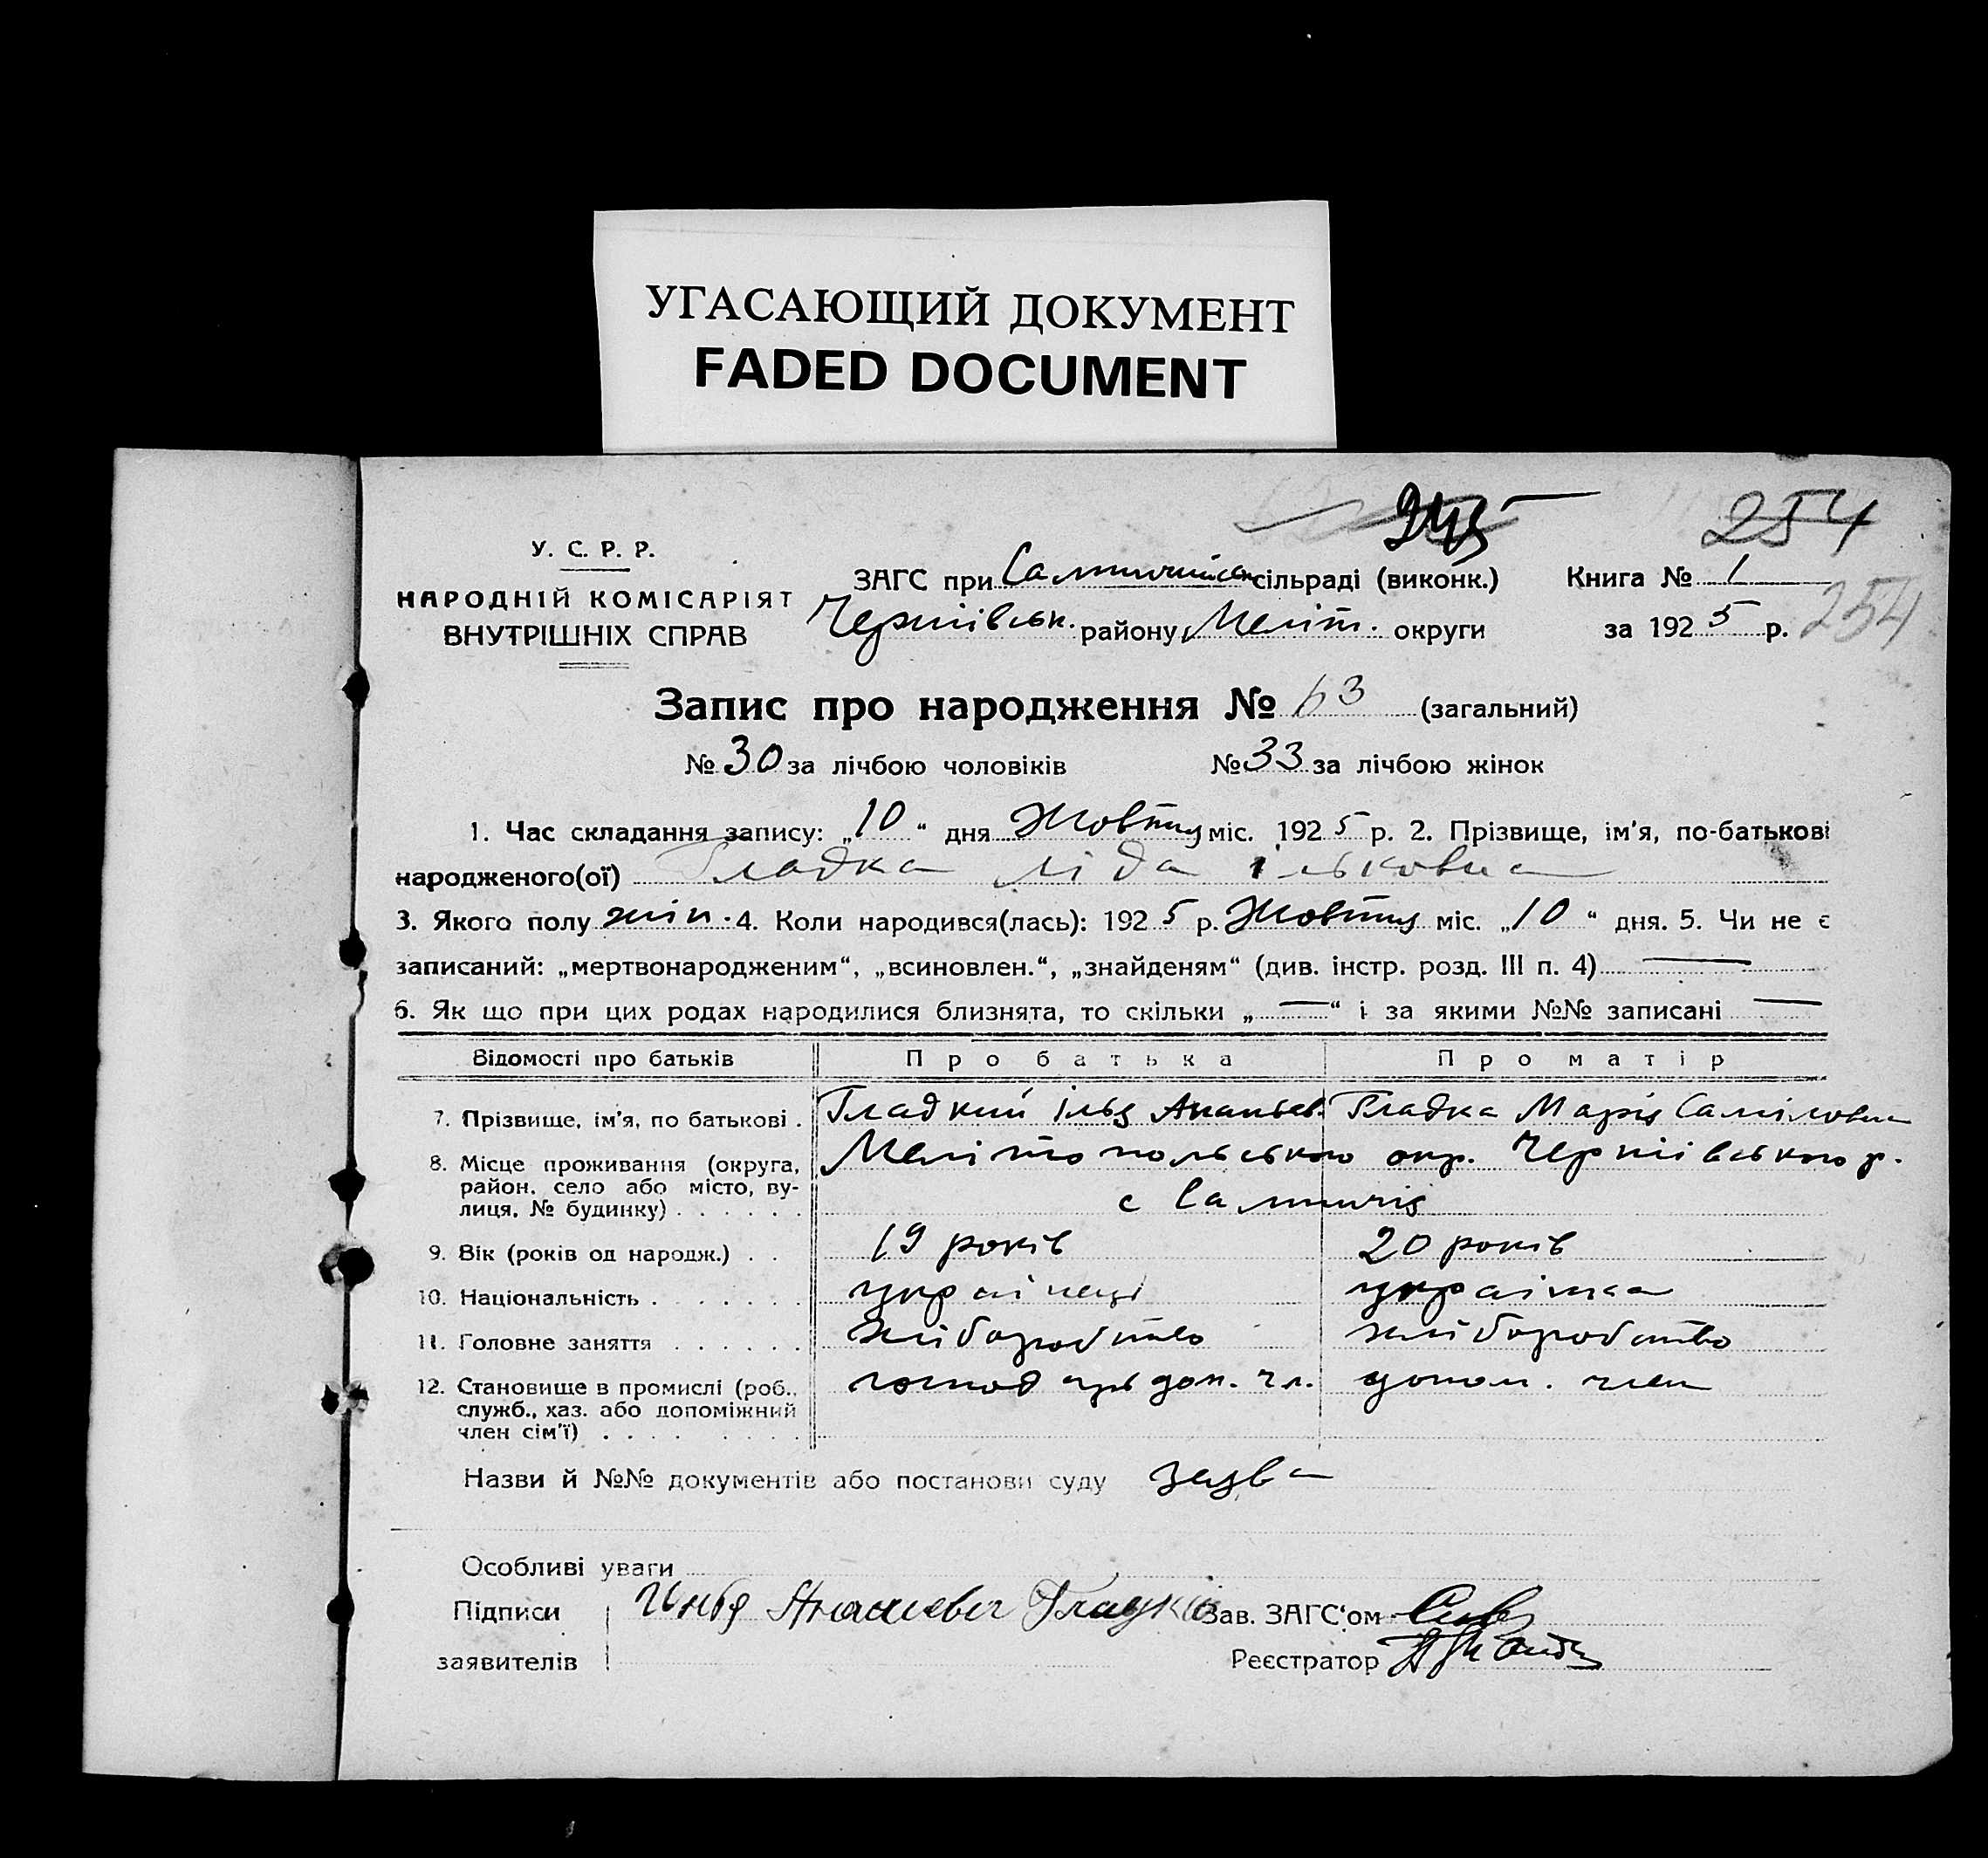 УГАСАЮЩИЙ ДОКУМЕНТ
FADED DOCUMENT
245
254
У. С. Р. Р.
НАРОДНІЙ КОМІСАРІЯТ
ВНУТРІШНІХ СПРАВ
ЗАГС при сільраді (виконк.) Книга № 1
Чернівськ. району Меліт. округи за 1925 р. 254
Запис про народження № 63 (загальний)
№ 30 за лічбою чоловіків № 33 за лічбою жінок
1. Час складання запису: „10“ дня Жовтня міс. 1925 р. 2. Прізвище, ім'я, по-батькові
народженого(ої) Гладка Ліда Ільковна
3. Якого полу жін. 4. Коли народився(лась): 1925 р. Жовтня міс. „10“ дня. 5. Чи не є
записаний: „мертвонародженим“, „всиновлен.“, „знайденям“ (див. інстр. розд. III п. 4) —
6. Як що при цих родах народилися близнята, то скільки „—“ і за якими №№ записані —
Відомості про батьків Про батька Про матір
7. Прізвище, ім'я, по батькові . Гладкий Ілья Ананьєв. Гладка Марія
8. Місце проживання (округа, Мелітопольського окр. Чернівського р.
район, село або місто, ву-
лиця, № будинку) . . . . . . с
9. Вік (років од народж.) . . 19 років 20 років
10. Національність . . . . . . . українець українка
11. Головне заняття . . . . . . хліборобство хліборобство
12. Становище в промислі (роб., господарь доп. чл. допом. член
служб., хаз. або допоміжний
член сім'ї) . . . . . . . .
Назви й №№ документів або постанови суду заява
Особливі уваги
Підписи Илья Ананиевич Гладкий Зав. ЗАГС'ом
заявителів Реєстратор